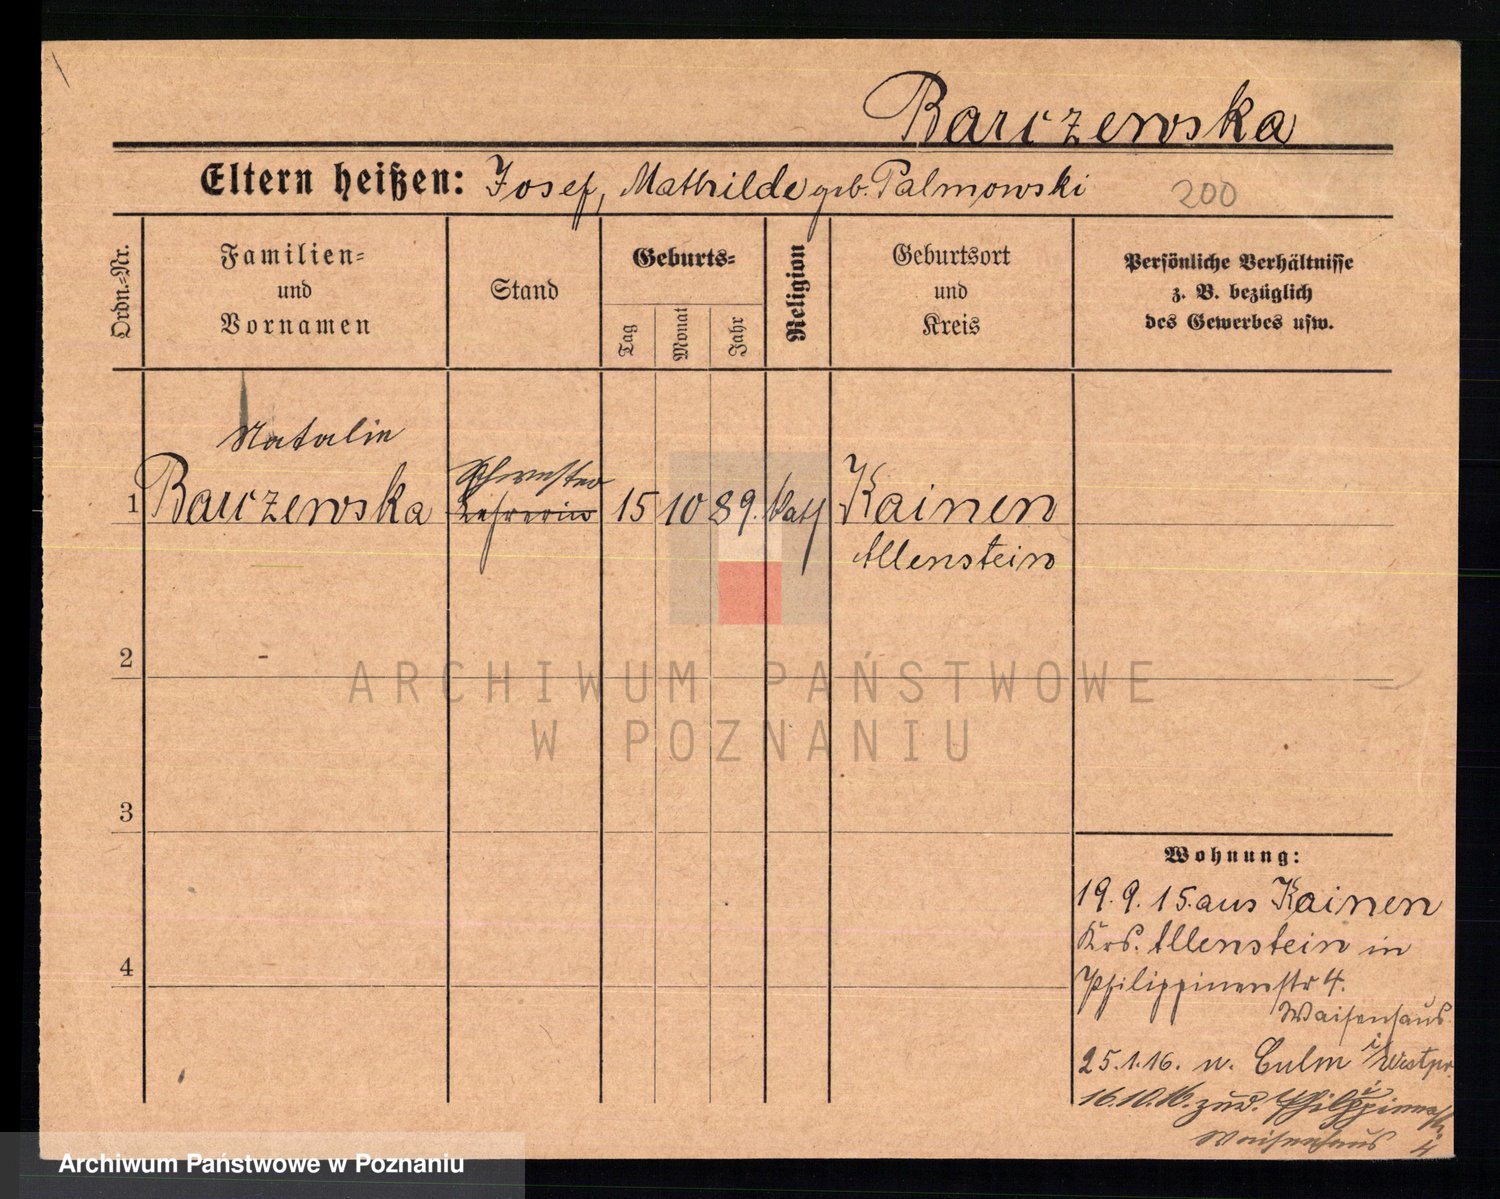 Barczewska
Eltern heißen: Josef, Mathilde geb. Palmowski 200
Ordn.-Nr.
Familien-
und
Vornamen
Stand
Geburts-
Tag
Monat
Jahr
Religion
Geburtsort
und
Kreis
Persönliche Verhältnisse
z. B. bezüglich
des Gewerbes usw.
Natalie
Schwester
1 Barczewska Lehrerin 15 10 89. kath Kainen
Allenstein
2
3
4
ARCHIWUM PAŃSTWOWE
W POZNANIU
Wohnung:
19. 9. 15. aus Kainen
Krs. Allenstein in
Philippinenstr 4.
Waisenhaus
25. 1. 16. n. Culm i/Westpr
16. 10. 16. zur. Philippinenstr
Waisenhaus 4
Archiwum Państwowe w Poznaniu